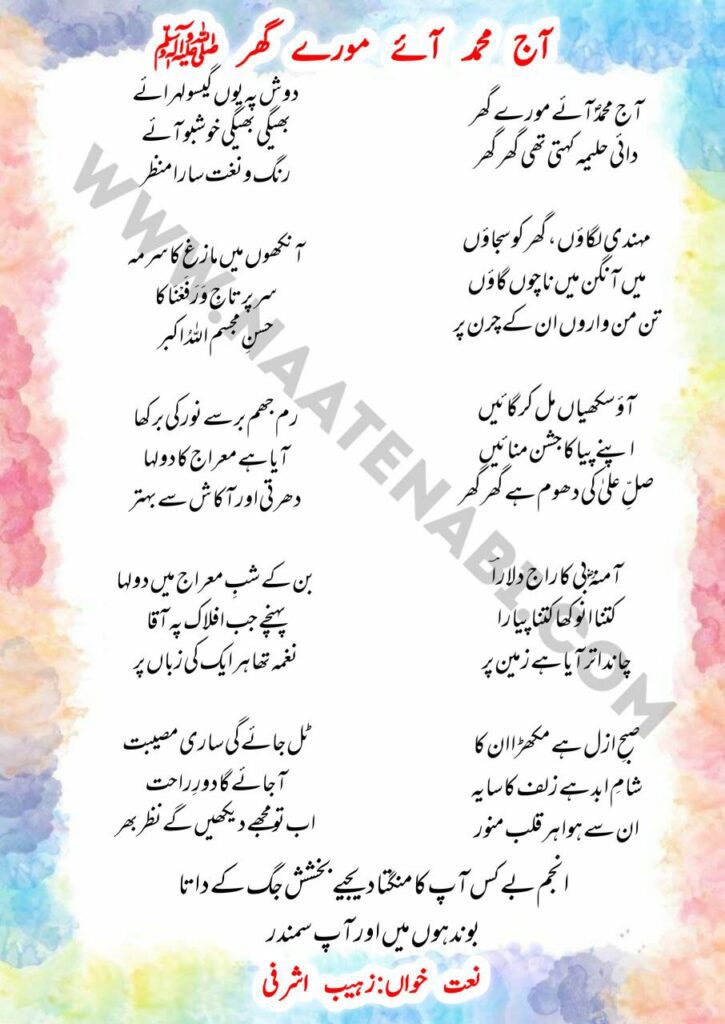 آج محمد آئے مورے گھر ﷺ
آج محمدؐ آئے مورے گھر
دائی حلیمہ کہتی تھی گھر گھر
مہندی لگاؤں، گھر کو سجاؤں
میں آنگن میں ناچوں گاؤں
تن من واروں ان کے چرن پر
آؤ سکھیاں مل کر گائیں
اپنے پیا کا جشن منائیں
صلِّ علیٰ کی دھوم ہے گھر گھر
آمنہؓ بی کا راج دلارا
کتنا انوکھا کتنا پیارا
چاند اتر آیا ہے زمین پر
صبحِ ازل ہے مکھڑا ان کا
شامِ ابد ہے زلف کا سایہ
ان سے ہوا ہر قلب منور
دوش پہ یوں گیسو لہرائے
بھیگی بھیگی خوشبو آئے
رنگ و نغت سارا منظر
آنکھوں میں مازغ کا سرمہ
سر پر تاج وَرَفَعْنَا کا
حسنِ مجسم اللہُ اکبر
رم جھم برسے نور کی برکھا
آیا ہے معراج کا دولہا
دھرتی اور آکاش سے بہتر
بن کے شبِ معراج میں دولہا
پہنچے جب افلاک پہ آقا
نغمہ تھا ہر ایک کی زباں پر
ٹل جائے گی ساری مصیبت
آجائے گا دورِ راحت
اب تو مجھے دیکھیں گے نظر بھر
انجم بے کس آپ کا منگتا دیجیے بخشش جگ کے داتا
بوند ہوں میں اور آپ سمندر
نعت خواں: زہیب اشرفی
WWW.NAATENABI.COM